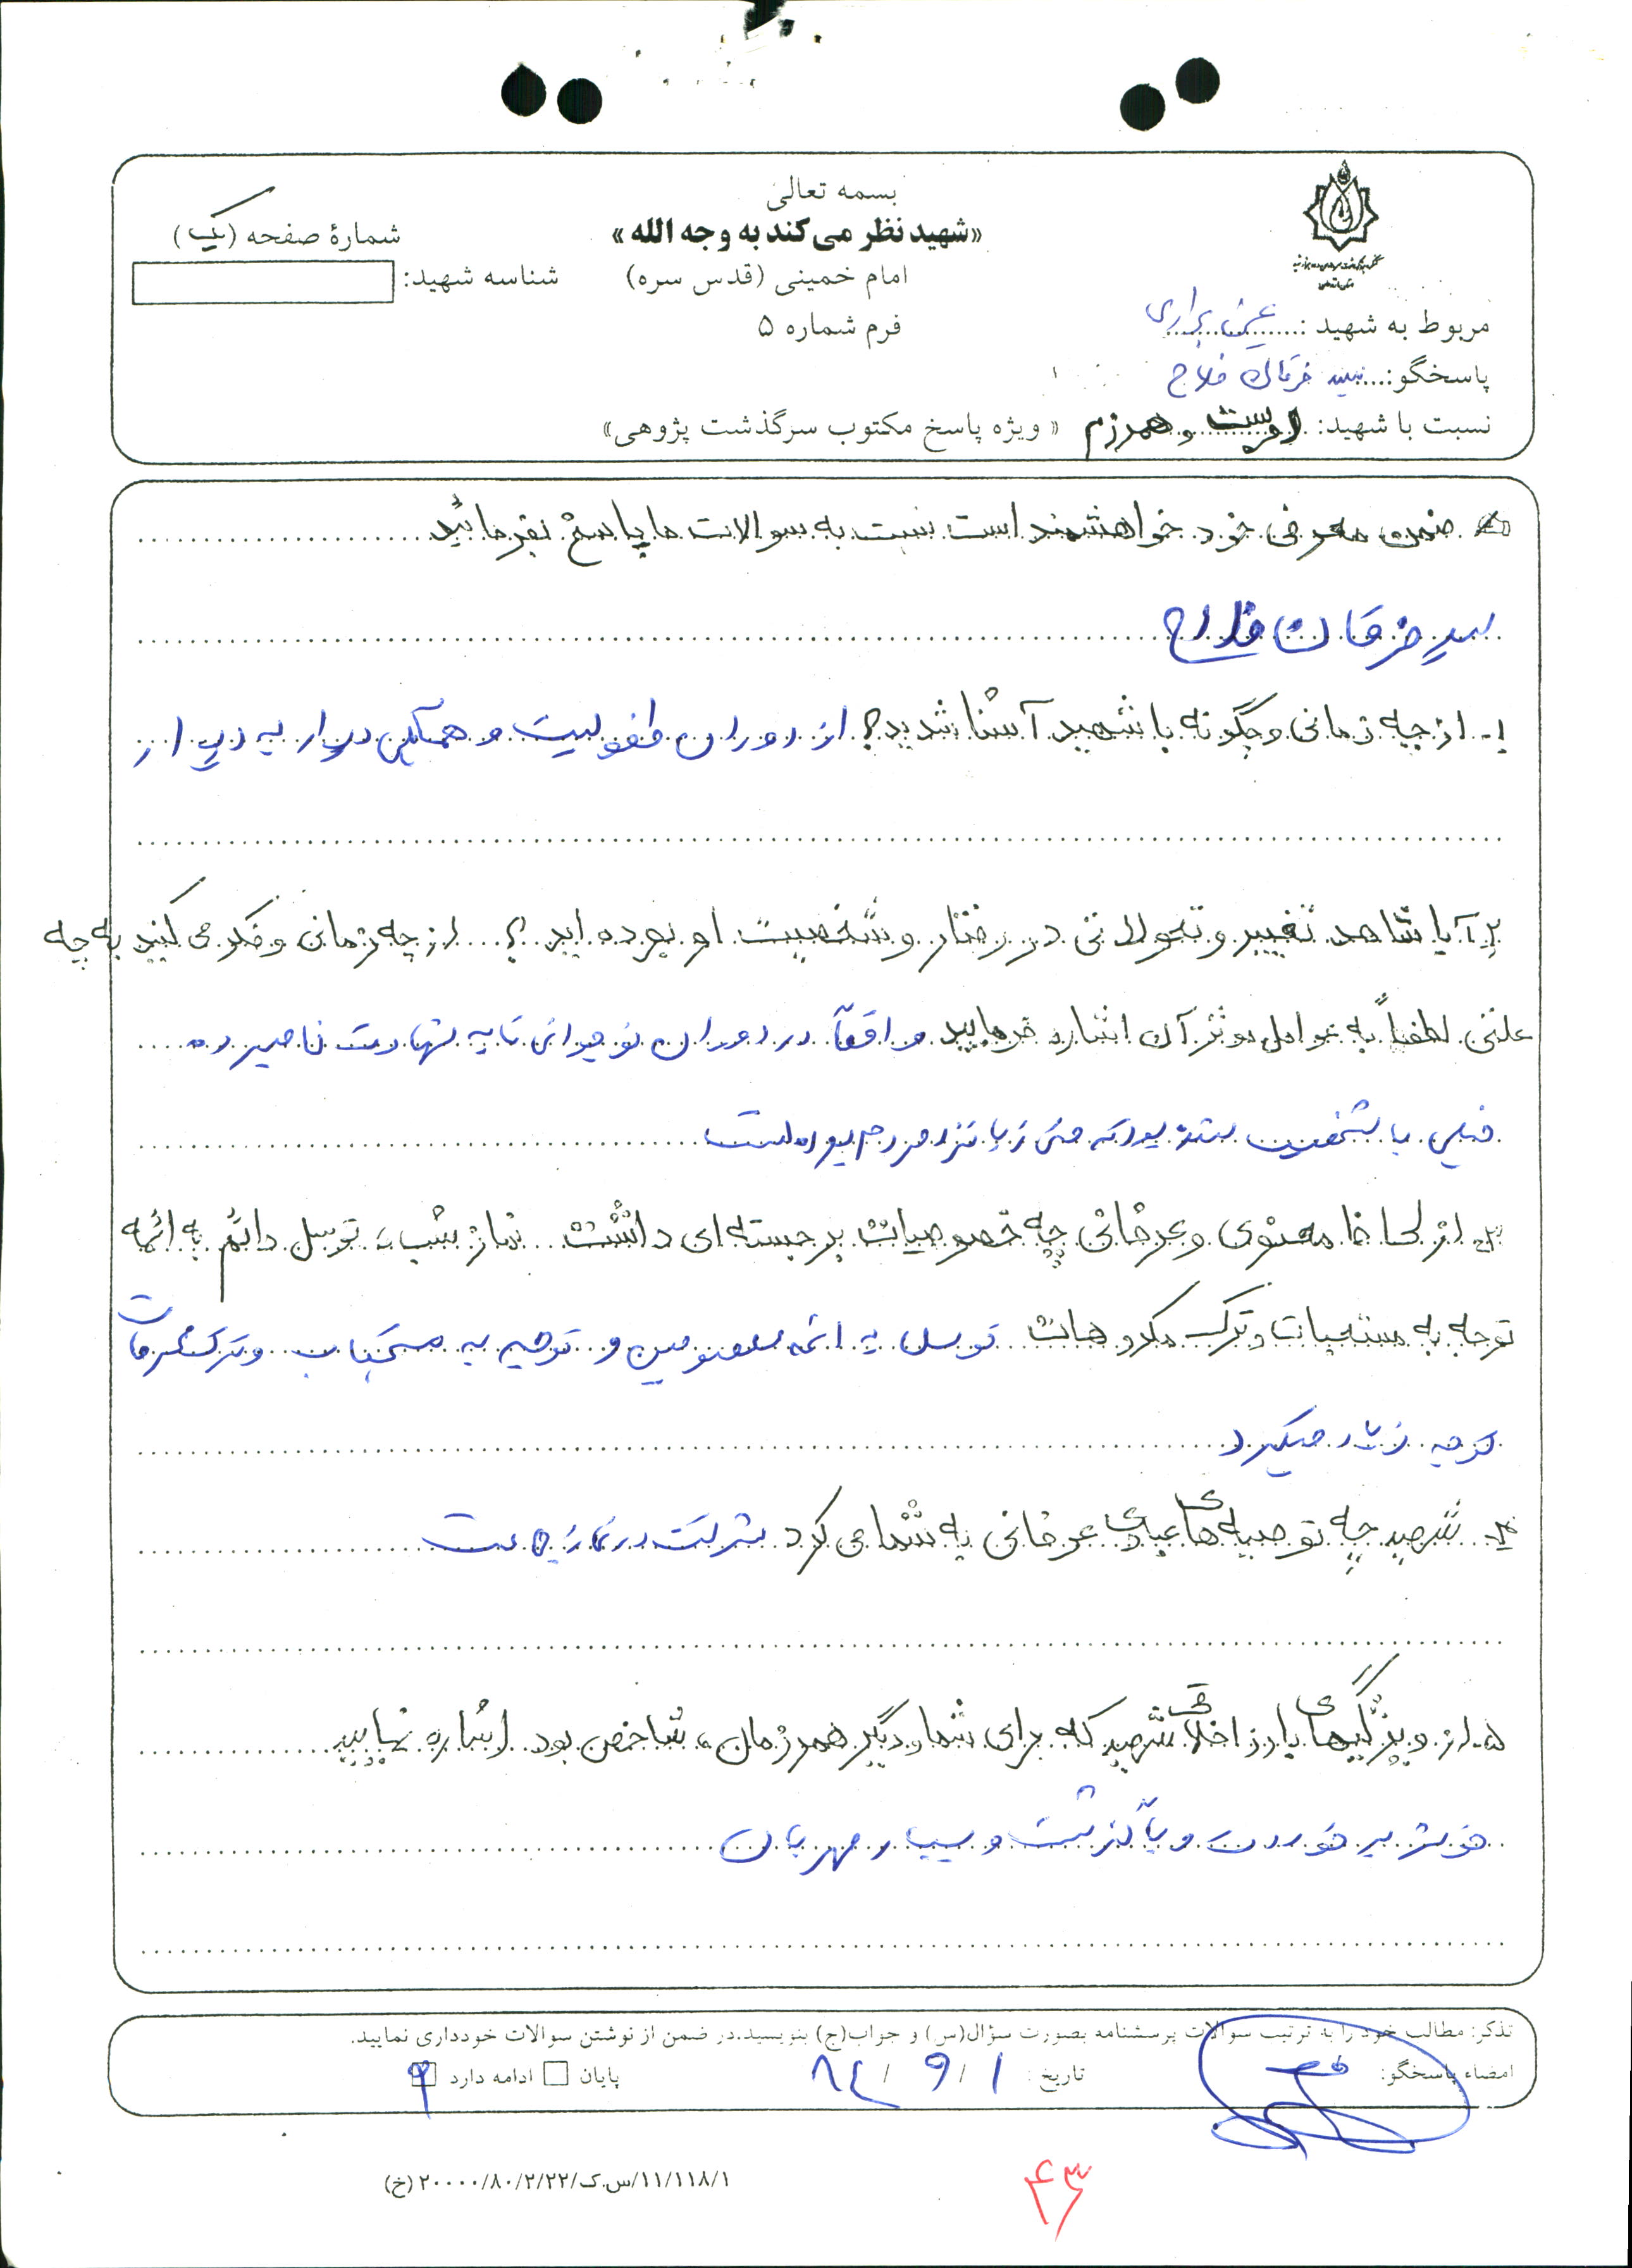 بسمه تعالی
«شهید نظر می‌کند به وجه الله»
امام خمینی (قدس سره)
فرم شماره ۵
شمارهٔ صفحه (یک)
شناسه شهید:
مربوط به شهید: براری
پاسخگو: سید فرقان فلاح
نسبت با شهید: دوست و همرزم « ویژه پاسخ مکتوب سرگذشت پژوهی»
ضمن معرفی خود خواهشمند است نسبت به سوالات ما پاسخ بفرمائید
سید فرقان فلاح
۱- از چه زمانی و چگونه با شهید آشنا شدید؟ از دوران طفولیت و همکلاس دیوار به دیوار
۲- آیا شاهد تغییر و تحولاتی در رفتار و شخصیت او بوده اید؟ از چه زمانی و فکر می کنید به چه
علتی لطفاً به عوامل موثر آن اشاره فرمایید واقعاً در دوران نوجوانی تا به شهادت
خیلی با شخصیت بود که نزد مردم بوده است
۳- از لحاظ معنوی و عرفانی چه خصوصیات برجسته ای داشت نماز شب، توسل دائم به ائمه
توجه به مستحبات و ترک مکروهات توسل به ائمه معصومین و توجه به مستحبات و ترک
توجه زیاد میکرد
۴- شهید چه توصیه های عبادی عرفانی به شما می کرد شرکت در نماز جماعت
۵- از ویژگیهای بارز اخلاقی شهید که برای شما و دیگر همرزمان، شاخص بود اشاره نمایید
خوش برخوردن و با گذشت و بسیار مهربان
تذکر: مطالب خود را به ترتیب سوالات پرسشنامه بصورت سؤال(س) و جواب(ج) بنویسید.در ضمن از نوشتن سوالات خودداری نمایید.
امضاء پاسخگو: تاریخ: ۱ / ۹ / ۸۴ پایان ادامه دارد
۴۳
۱۱/۱۱۸/۱/س.ک/۲۰۰۰۰/۸۰/۲/۲۲ (خ)